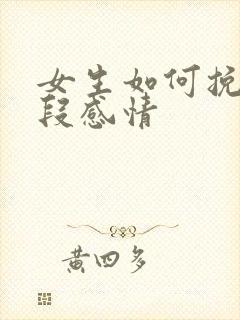 女生如何挽
段感情
黄四多